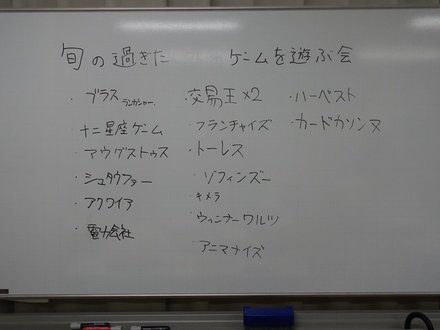 旬の過ぎた ゲームを遊ぶ会
・ブラス ランカシャー
・十二星座ゲーム
・アウグストゥス
・シュタウファー
・アクワイア
・電力会社
・交易王×2
・フランチャイズ
・トーレス
・ゾフィンズー
・キメラ
・ウィンナーワルツ
・アニマナイズ
・ハーベスト
・カードカソンヌ